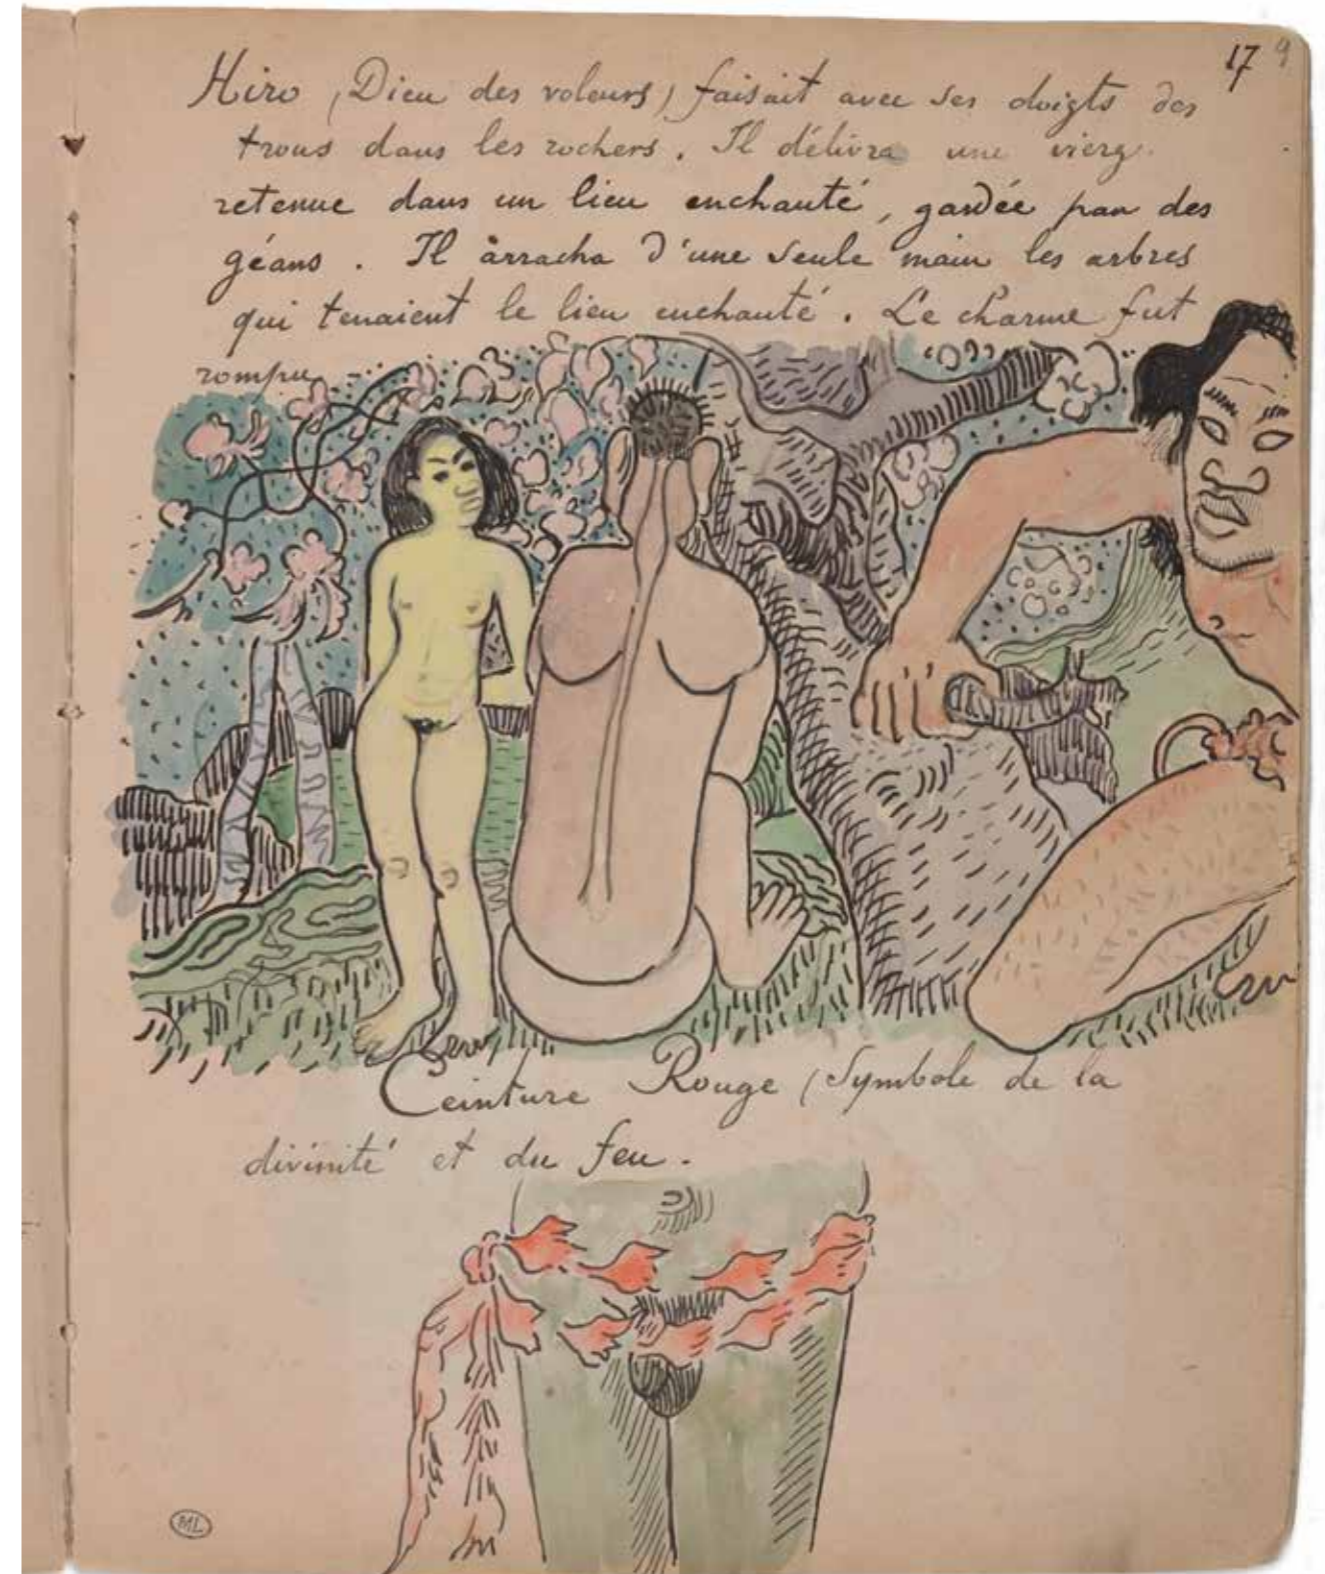 17 9
Hiro (Dieu des voleurs) faisait avec ses doigts des
trous dans les rochers. Il délivra une vierge
retenue dans un lieu enchanté, gardée par des
géans. Il arracha d'une seule main les arbres
qui tenaient le lieu enchanté. Le charme fut
rompu
Ceinture Rouge (Symbole de la
divinité et du feu.
ML